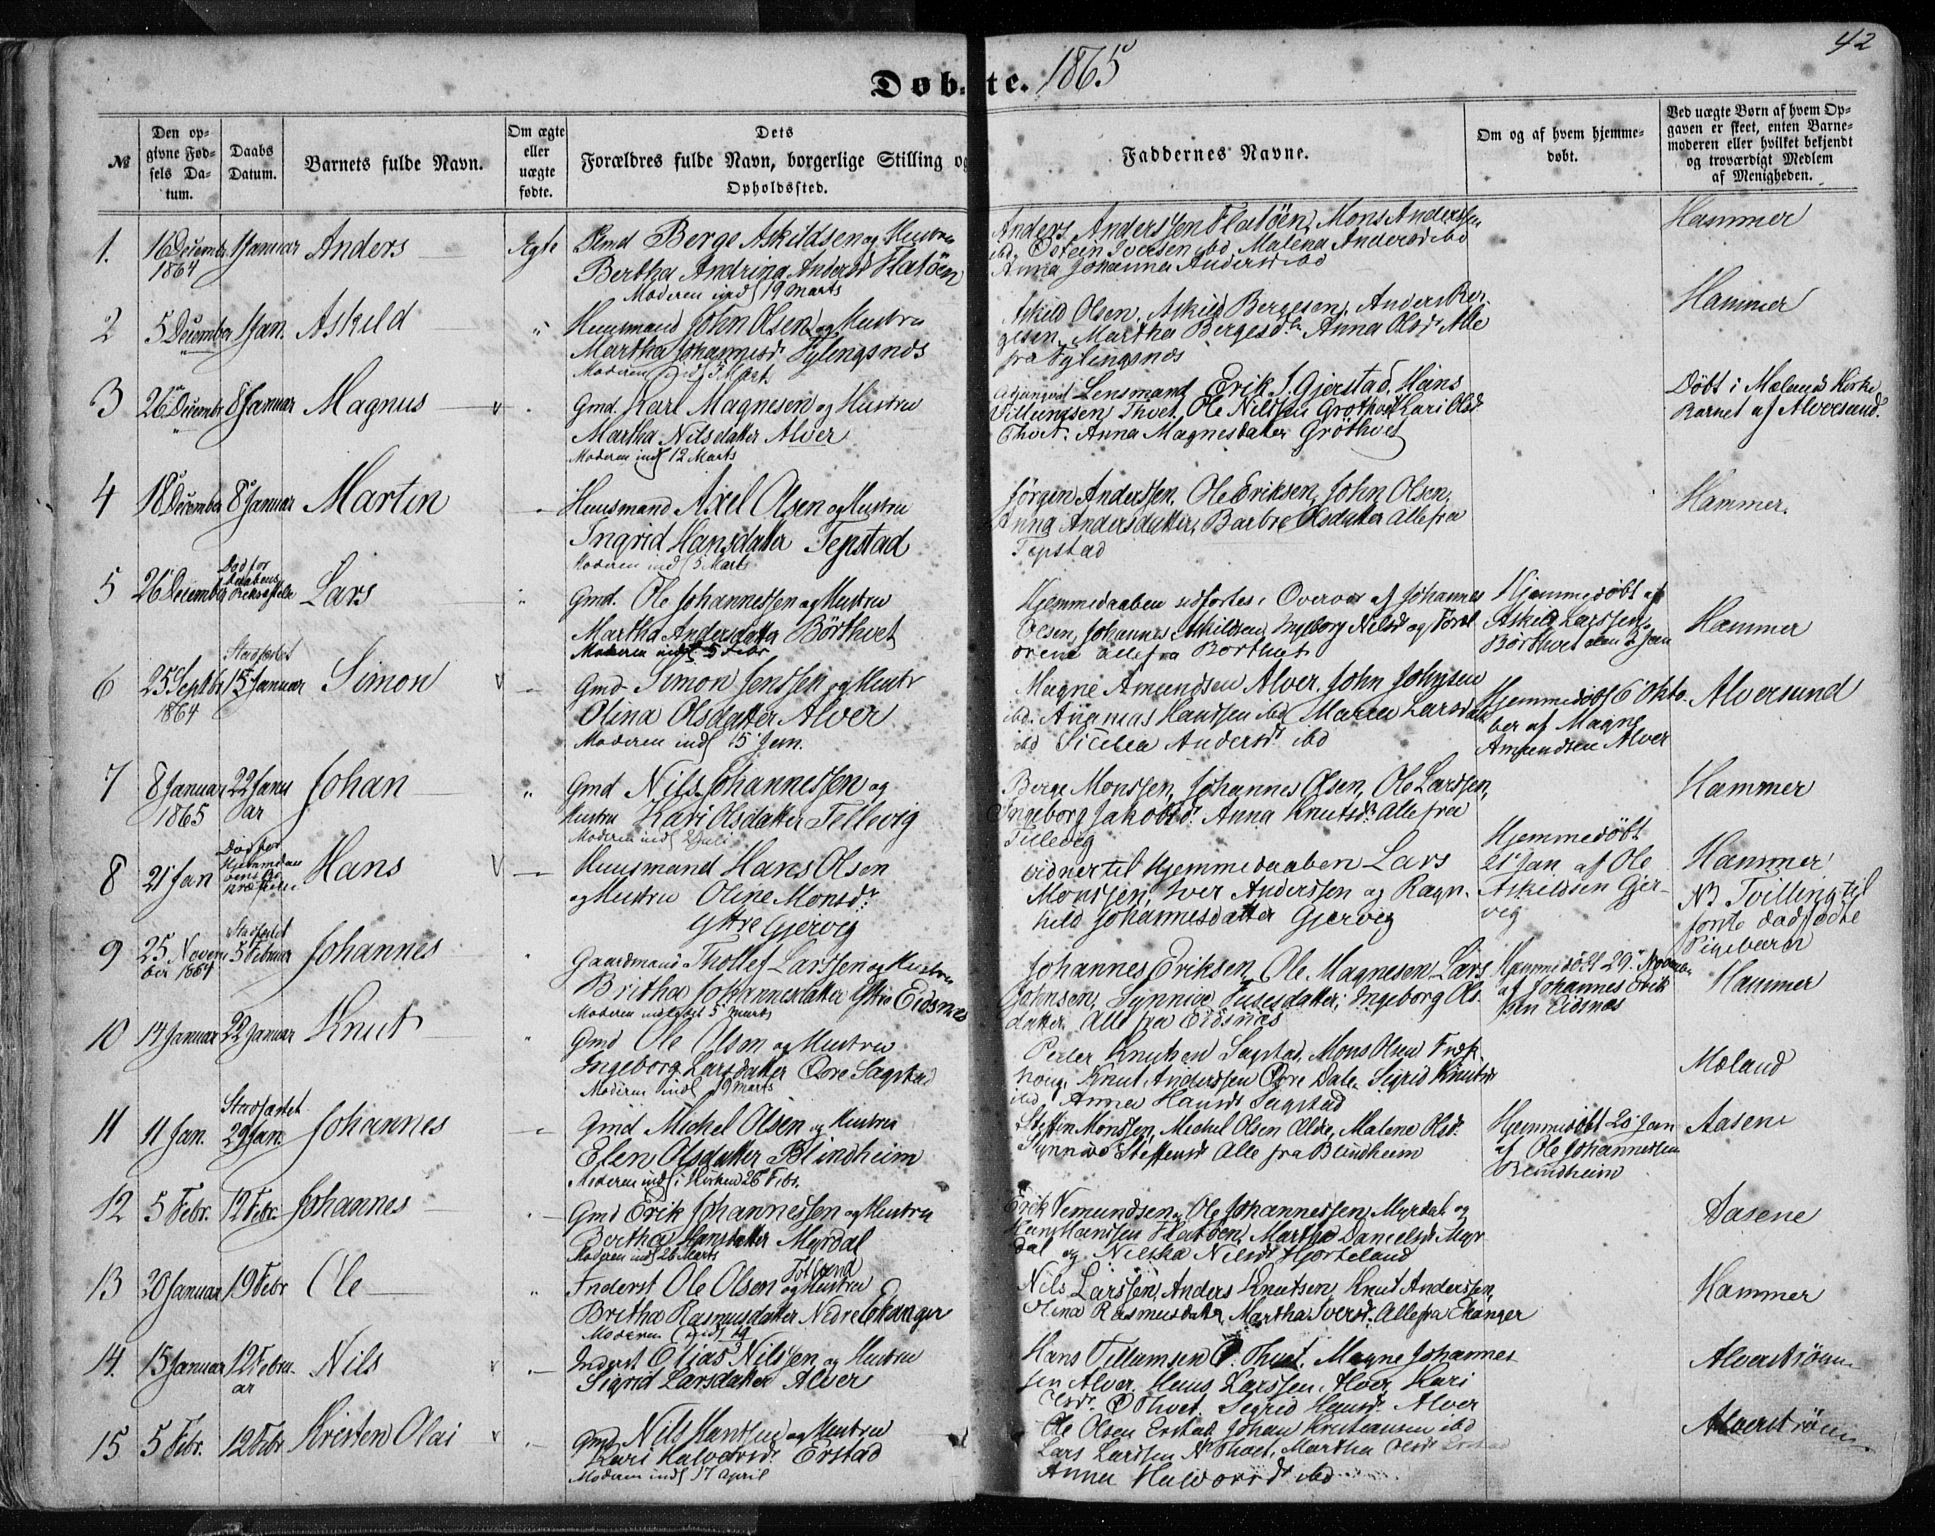 42
Døbte. 1865
№
Den opgivne Fødsels Datum.
Daabs Datum.
Barnets fulde Navn.
Om ægte eller uægte fødte.
Dets Forældres fulde Navn, borgerlige Stilling og Opholdssted.
Faddernes Navne.
Om og af hvem hjemmedøbt.
Ved uægte Børn af hvem Opgaven er skeet, enten Barnemoderen eller hvilket bekjendt og troværdigt Medlem af Menigheden.
1. 16 Decembr 1864 1 Januar Anders Ægte
Gmd Berge Askildsen og Hustru
Bertha Andrina Andersd Flatöen
Moderen indl 19 Marts
Anders Anderssen Flatöen, Mons Anderssen
ibd, Östein Iversen ibd, Malena Andersd ibd
Anna Johanna Andersd ibd
Hammer
2 5 December 1 Jan. Askild "
Huusmand John Olsen og Hustru
Martha Johannesdr Fylingsnæs
Moderen indl 5 Mart
Askild Olsen, Askild Bergesen, Anders Ber-
gesen, Martha Bergesdr Anna Olsdr Alle
fra Fylingsnæs
Hammer
3 26 Decembr 8 Januar Magnus
Gmd. Karl Magnesen og Hustru
Martha Nilsdatter Alver
Moderen indl 12 Marts
Lensmand Erik J. Gjerstad, Hans
Tillumgsen Thvet, Ole Nilssen Grothvet Kari Olsd
Thvet. Anna Magnesdatter Gröthvet
Döbt i Mælands Kirke
Barnet af Alversund.
4 18 December 8 Januar Martin
Huusmand Axel Olsen og Hustru
Ingrid Hansdatter Tepstad
Moderen indl 5 Marts
Jörgen Anderssen, Ole Eriksen, John Olsen,
Anna Andersdatter, Barbro Olsdatter Alle fra
Tepstad
Hammer.
5 26 December Død før Daabens Bekræftelse Lars "
Gmd. Ole Johannessen og Hustru
Martha Andersdatter Börthvet
Moderen indl 5 Febr
Hjemmedaaben udfortes i Overvær af Johannes
Olsen, Johannes Askildsen, Ingeborg Nilsd og Foræl
drene alle fra Borthvet
Hjemmedöbt af
Askild Larssen
Börthvet den 2 Jan
Hammer
6 25 Septbr 1864 Stadfæstet 15 Januar Simon
Gmd Simon Jenssen og Hustr
Olina Olsdatter Alver
Moderen indl 15 Jan.
Magne Amundsen Alver, John Johnsen
ibd. Ananias Hanssen ibd Maria Larsdatter
ibd Sicilia Andersdr ibd
Hjemmedöbt 6 Okto-
ber af Magne
Amundsen Alver
Alversund
7 8 Januar 1865 22 Januar Johan "
Gmd Nils Johannessen og
Hustru Kari Olsdatter Tellevig
Moderen indl 2 Juli
Berge Monssen, Johannes Olsen, Ole Larssen,
Ingeborg Jakobsdr. Anna Knutsdr. Alle fra
Tellevig
Hammer
8 21 Jan Død før Hjemmedaabens Bekræftelse Hans
Huusmand Hans Olsen
og Hustru Oline Monsdr
Ytre Gjervig
Vidner til Hjemmedaaben Lars
Monssen, Iver Anderssen og Ragn-
hild Johannesdatter Gjervig
Hjemmedöbt
21 Jan af Ole
Askildsen Gjer-
vig
Hammer
NB Tvilling til
foste dødfødte
Pigebarn
9 25 November 1864 Stadfæstet 5 Februar Johannes
Gaardmand Thollef Larssen og Hustru
Britha Johannesdatter Ytre Eidsnæs
Moderen indledet 5 Marts
Johannes Eriksen, Ole Magnesen, Lars
Johnsen, Synniva Tusesdatter, Ingeborg Ols
datter Alle fra Eidsnæs
Hjemmedöbt 29 Novembr
af Johannes Erik
sen Eidsnæs
Hammer
10 14 Januar 22 Januar Knut "
Gmd Ole Olsen og Hustru
Ingeborg Larsdatter Övre Sagstad
Moderen indl 19 Marts
Peder Knutsen Sagstad, Mons Olsen
Knut Anderssen Övre Dale Sigrid Knutsdr
ibd, Anna Hansdr Sagstad
Mæland
11 11 Jan. Stadfæstet 29 Jan. Johannes
Gmd Michel Olsen og Hustru
Elen Olsdatter Blindheim
Moderen indl i Kirken 26 Febr.
Steffen Monssen, Michel Olsen Ældre, Malene Olsdr
Synnive Steffensd Alle fra Blindheim
Hjemmedöbt 20 Jan
af Ole Johannessen
Blindheim
Aasene
12 5 Febr. 12 Febr. Johannes
Gmd Erik Johannessen og Hustru
Bertha Hansdatter Myrdal
Moderen indl 26 Marts
Erik Vemundsen, Ole Johannessen Myrdal og
Hans Hanssen Flatöen, Martha Danielsdr Myr
dal og Nilska Nilsdr Hjorteland
Aasene
13 20 Januar 19 Febr Ole "
Inderst Ole Olsen Totland og Hustru
Britha Rasmusdatter Nedre Eknanger
Moderen indl 19
Nils Larssen, Anders Knutsen, Knut Anderssen,
Olina Rasmusdatter, Martha Iversdr. Alle fra Eknanger
Hammer
14. 15 Januar 12 Februar Nils
Inderst Elias Nilssen og Hustru
Sigrid Larsdatter Alver
Hans Tillumsen Ö. Thvet, Magne Johannes-
sen Alver, Hans Larssen Alver, Kari
Olsdr Ö Thvet. Sigrid Hansdr. Alver
Alverströmm
15 5 Febr. 12 Febr Kristen Olai
Gmd Nils Hanssen og Hustru
Kari Halvorsdr Erstad
Moderen indl 17 April
Ole Olsen Erstad, Johan Kristiansen ibd
Lars Larssen N Thvet, Martha Olsdr Erstad
Anna Halvorsdr ibd
Alverströmm